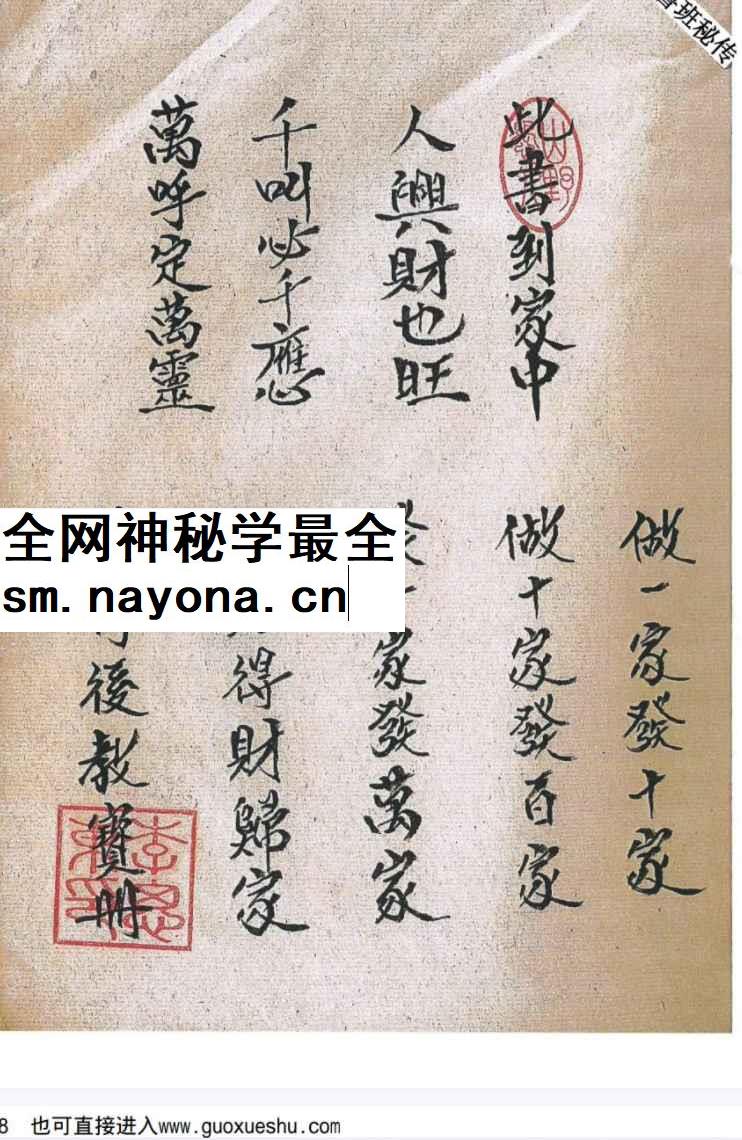 班秘传
此書到家中
人興財也旺
千叫必千應
萬呼定萬靈
做一家發十家
做十家發百家
家發萬家
得財歸家
後教寶冊
全网神秘学最全
sm.nayona.cn
8 也可直接进入www.guoxueshu.com